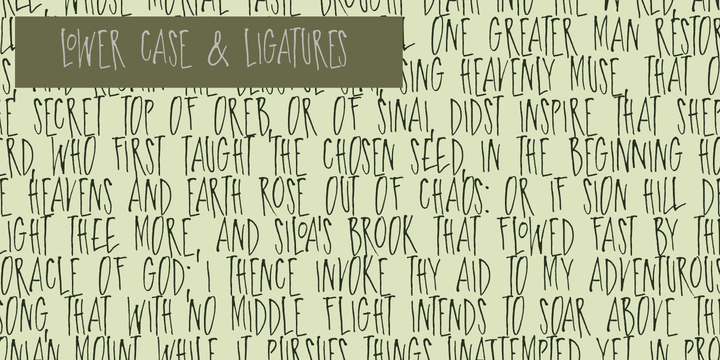 LOWER CASE & LIGATURES
BROUGHT DEATH INTO THE
ONE GREATER MAN RESTOR
SING HEAVENLY MUSE, THAT O
SECRET TOP OF OREB, OR OF SINAI, DIDST INSPIRE THAT SHEP
RD, WHO FIRST TAUGHT THE CHOSEN SEED, IN THE BEGINNING HO
E HEAVENS AND EARTH ROSE OUT OF CHAOS: OR IF SION HILL D
IGHT THEE MORE, AND SILOA'S BROOK THAT FLOWED FAST BY TH
ORACLE OF GOD; I THENCE INVOKE THY AID TO MY ADVENTUROUS
SONG, THAT WITH NO MIDDLE FLIGHT INTENDS TO SOAR ABOVE TH
ONIAN MOUNT WHILE IT PURSUES THINGS UNATTEMPTED YET IN PRO